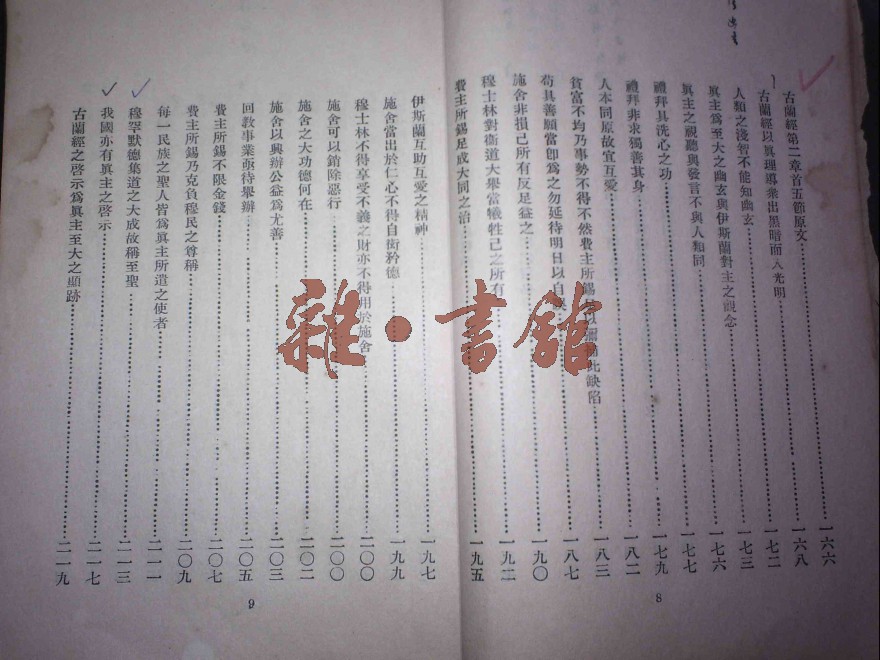 古蘭經第二章首五節原文……一六六
古蘭經以眞理導衆出黑暗而入光明……一六八
人類之淺智不能知幽玄……一七二
眞主爲至大之幽玄與伊斯蘭對主之觀念……一七三
眞主之視聽與發言不與人類同……一七六
禮拜具洗心之功……一七七
禮拜非求獨善其身……一七九
人本同原故宜互愛……一八二
貧富不均乃事勢不得不然費主所錫此缺陷……一八三
苟具善願當卽爲之勿延待明日以自……一八七
施舍非損己所有反足益之……一九〇
穆士林對衞道大舉當犧牲己之所有……一九二
費主所錫足成大同之治……一九五
8
伊斯蘭互助互愛之精神……一九七
施舍當出於仁心不得自衒矜德……一九九
穆士林不得享受不義之財亦不得用於施舍……二〇〇
施舍可以銷除惡行……二〇〇
施舍之大功德何在……二〇二
施舍以興辦公益爲尤善……二〇三
回教事業亟待舉辦……二〇五
費主所錫不限金錢……二〇七
費主所錫乃克負穆民之尊稱……二〇九
每一民族之聖人皆爲眞主所遣之使者……二一一
穆罕默德集道之大成故稱至聖……二一三
我國亦有眞主之啓示……二一七
古蘭經之啓示爲眞主至大之顯跡……二一九
9
雜·書館